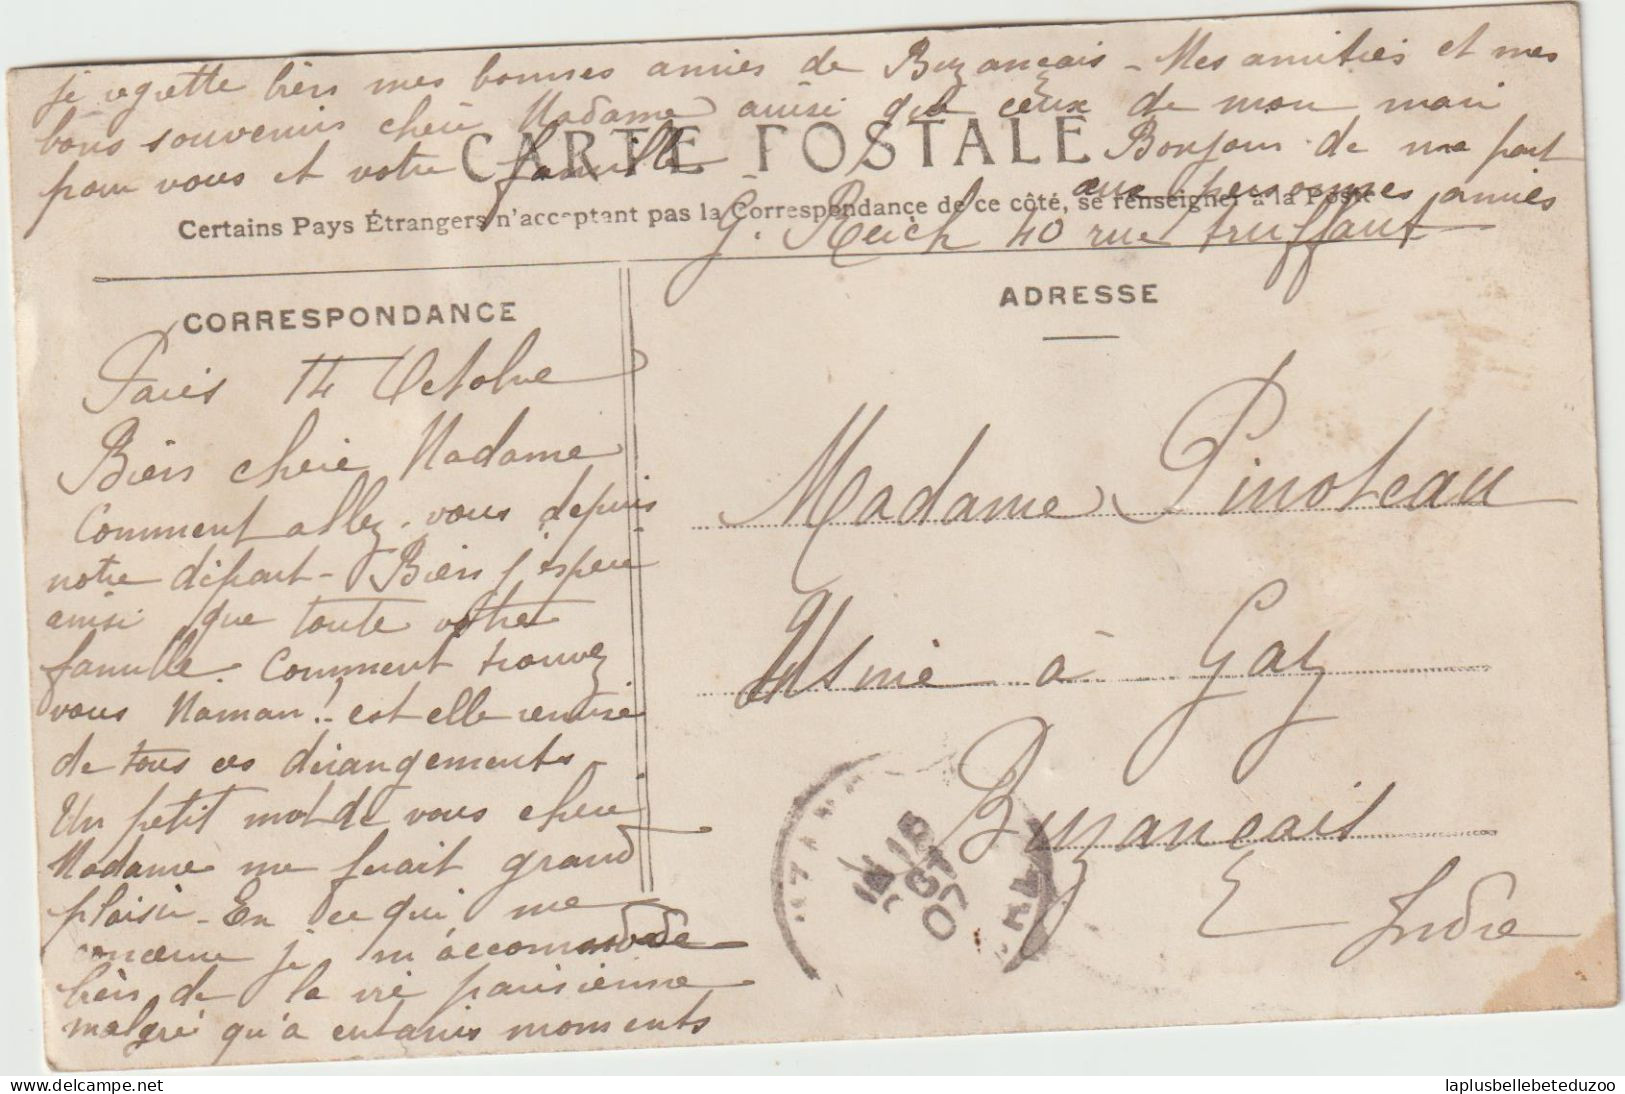 je regrette bien mes bonnes amies de Buzançais - Mes amitiés et mes
bons souvenirs chère Madame ainsi que ceux de mon mari
pour vous et votre famille Bonjour de ma part
aux personnes amies
G. Reich 40 rue truffaut
CARTE POSTALE
Certains Pays Étrangers n'acceptant pas la Correspondance de ce côté, se renseigner à la Poste
CORRESPONDANCE
Paris 14 Octobre
Bien chère Madame
Comment allez-vous depuis
notre départ - Bien j'espère
ainsi que toute votre
famille. Comment trouvez
vous Maman! - est elle remise
de tous ces dérangements -
Un petit mot de vous chère
Madame me ferait grand
plaisir - En ce qui me
concerne je m'accommode
bien de la vie parisienne
malgré qu'à certains moments
ADRESSE
Madame Pinoteau
Usine à Gaz
Buzançais
Indre
laplusbellebeteduzoo